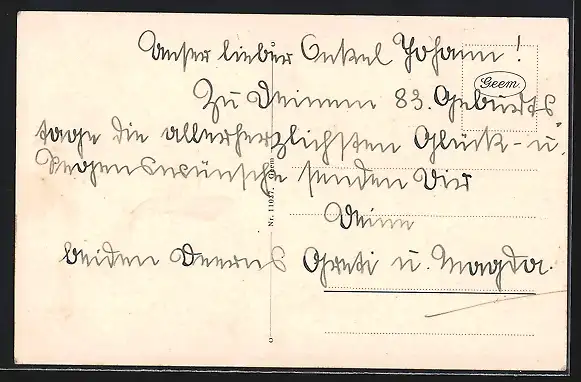 Unser lieber Onkel Johann!
Geem
Zu Deinem 83. Geburts
tage die allerherzlichsten Glück- u.
Segenswünsche senden Dir
Deine
beiden Deerns Greti u. Magda.
Nr. 11027. Geem